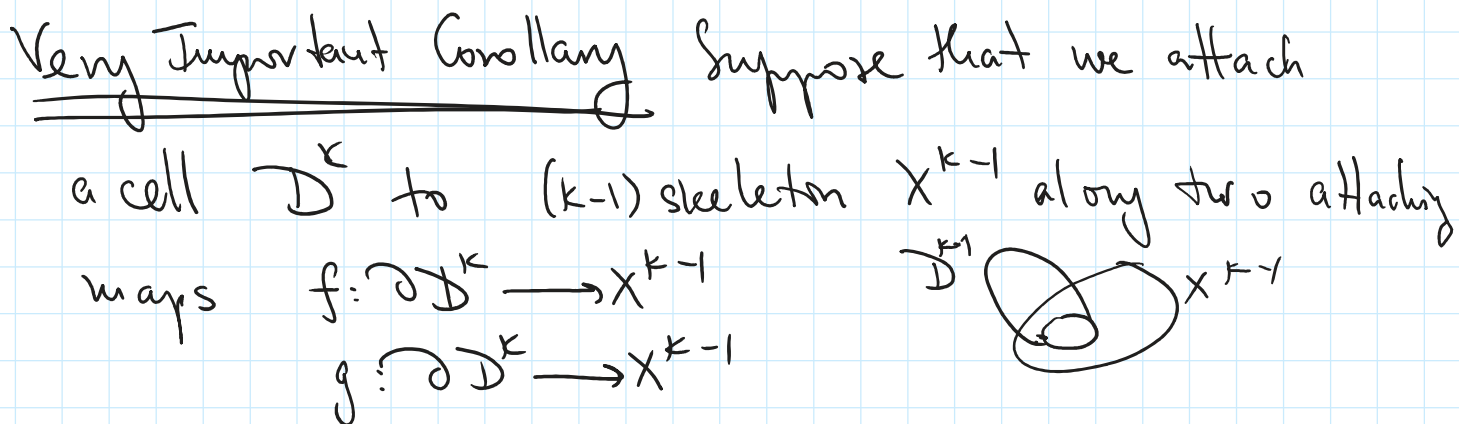 Very Important Corollary Suppose that we attach
a cell D^k to (k-1) skeleton X^{k-1} along two attaching
maps f: ∂D^k ⟶ X^{k-1} D^{k-1} X^{k-1}
g: ∂D^k ⟶ X^{k-1}